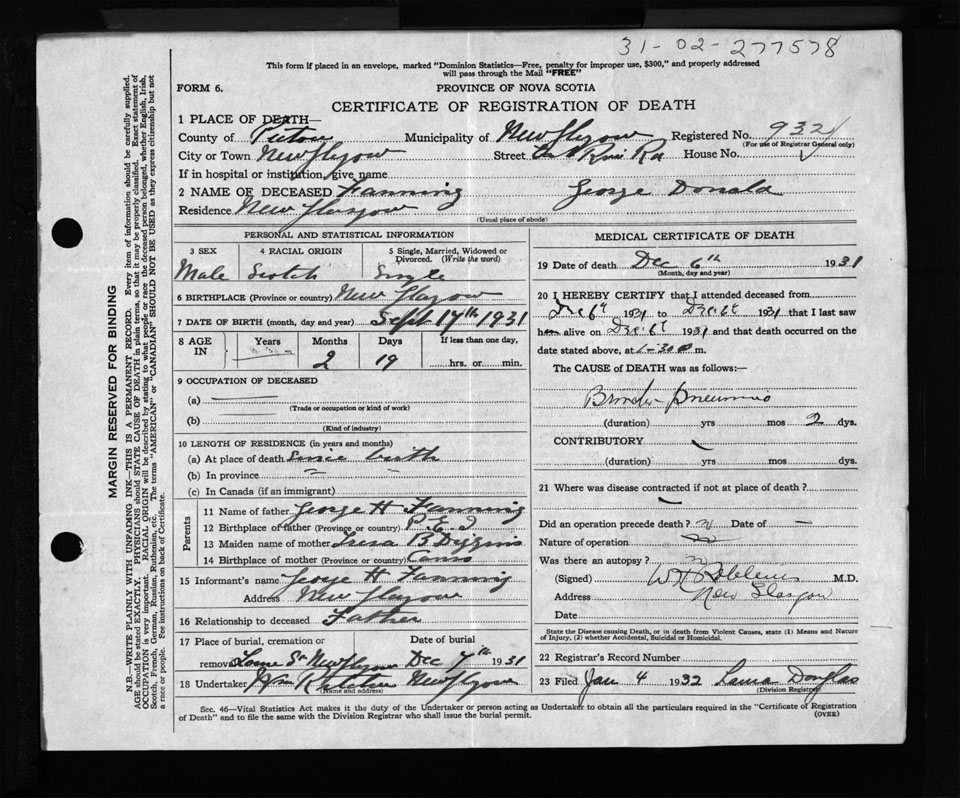 31-02-277578
This form if placed in an envelope, marked "Dominion Statistics—Free, penalty for improper use, $300," and properly addressed
will pass through the Mail "FREE"
FORM 6.
PROVINCE OF NOVA SCOTIA
CERTIFICATE OF REGISTRATION OF DEATH
1 PLACE OF DEATH—
County of Pictou Municipality of New Glasgow Registered No. 932
(For use of Registrar General only)
City or Town New Glasgow Street House No.
If in hospital or institution, give name
2 NAME OF DECEASED Fanning George Donald
Residence New Glasgow
(Usual place of abode)
PERSONAL AND STATISTICAL INFORMATION
3 SEX 4 RACIAL ORIGIN 5 Single, Married, Widowed or
Divorced. (Write the word)
Male Scotch Single
6 BIRTHPLACE (Province or country) New Glasgow
7 DATE OF BIRTH (month, day and year) Sept 17th 1931
8 AGE IN Years Months Days If less than one day,
2 19 hrs. or min.
9 OCCUPATION OF DECEASED
(a)
(Trade or occupation or kind of work)
(b)
(Kind of industry)
10 LENGTH OF RESIDENCE (in years and months)
(a) At place of death Since birth
(b) In province
(c) In Canada (if an immigrant)
Parents
11 Name of father George H Fanning
12 Birthplace of father (Province or country) P.E.I
13 Maiden name of mother Tresa B Diggins
14 Birthplace of mother (Province or country) Canso
15 Informant's name George H Fanning
Address New Glasgow
16 Relationship to deceased Father
17 Place of burial, cremation or Date of burial
removal Lorne St New Glasgow Dec 7th 1931
18 Undertaker Wm New Glasgow
(Name and address)
MEDICAL CERTIFICATE OF DEATH
19 Date of death Dec 6th 1931
(Month, day and year)
20 I HEREBY CERTIFY that I attended deceased from
Dec 6th 1931 to Dec 6th 1931 that I last saw
him alive on Dec 6th 1931 and that death occurred on the
date stated above, at 1-30 m.
The CAUSE of DEATH was as follows:—
Broncho-pneumonia
(duration) yrs mos 2 dys.
CONTRIBUTORY
(duration) yrs mos dys.
21 Where was disease contracted if not at place of death?
Did an operation precede death? Date of —
Nature of operation
Was there an autopsy?
(Signed) M.D.
Address New Glasgow
Date
State the Disease causing Death, or in death from Violent Causes, state (1) Means and Nature
of Injury, (2) whether Accidental, Suicidal or Homicidal.
22 Registrar's Record Number
23 Filed Jan 4 1932 Laura Douglas
(Division Registrar)
Sec. 46—Vital Statistics Act makes it the duty of the Undertaker or person acting as Undertaker to obtain all the particulars required in the "Certificate of Registration
of Death" and to file the same with the Division Registrar who shall issue the burial permit.
(OVER)
MARGIN RESERVED FOR BINDING
N.B.—WRITE PLAINLY WITH UNFADING INK—THIS IS A PERMANENT RECORD. Every item of information should be carefully supplied.
AGE should be stated EXACTLY. PHYSICIANS should STATE CAUSE OF DEATH in plain terms, so that it may be properly classified. Exact statement of
OCCUPATION is very important. RACIAL ORIGIN will be described by stating to what people or race the deceased person belonged, whether English, Irish,
Scotch, French, German, Russian, Ruthenian, etc. The terms "AMERICAN" or "CANADIAN" SHOULD NOT BE USED as they express citizenship but not
a race or people. See instructions on back of Certificate.